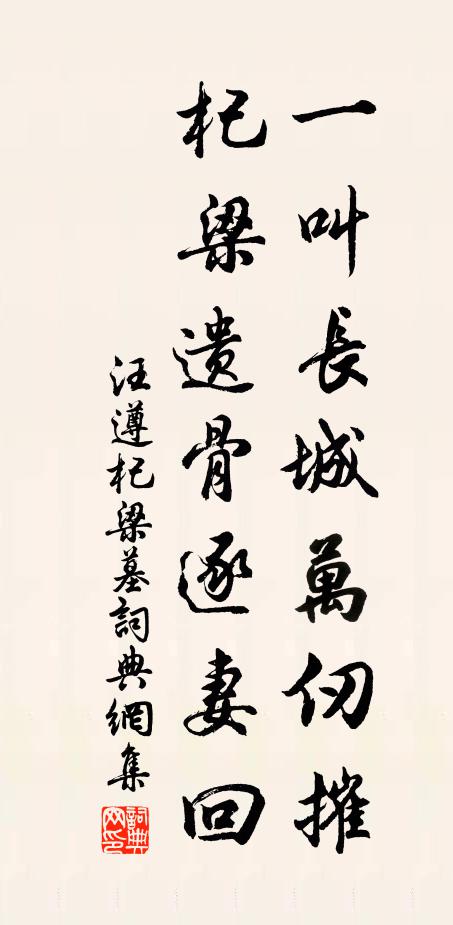 一叫長城萬仞摧
杞梁遺骨逐妻回
汪遵杞梁墓詞典網集
詞典网印